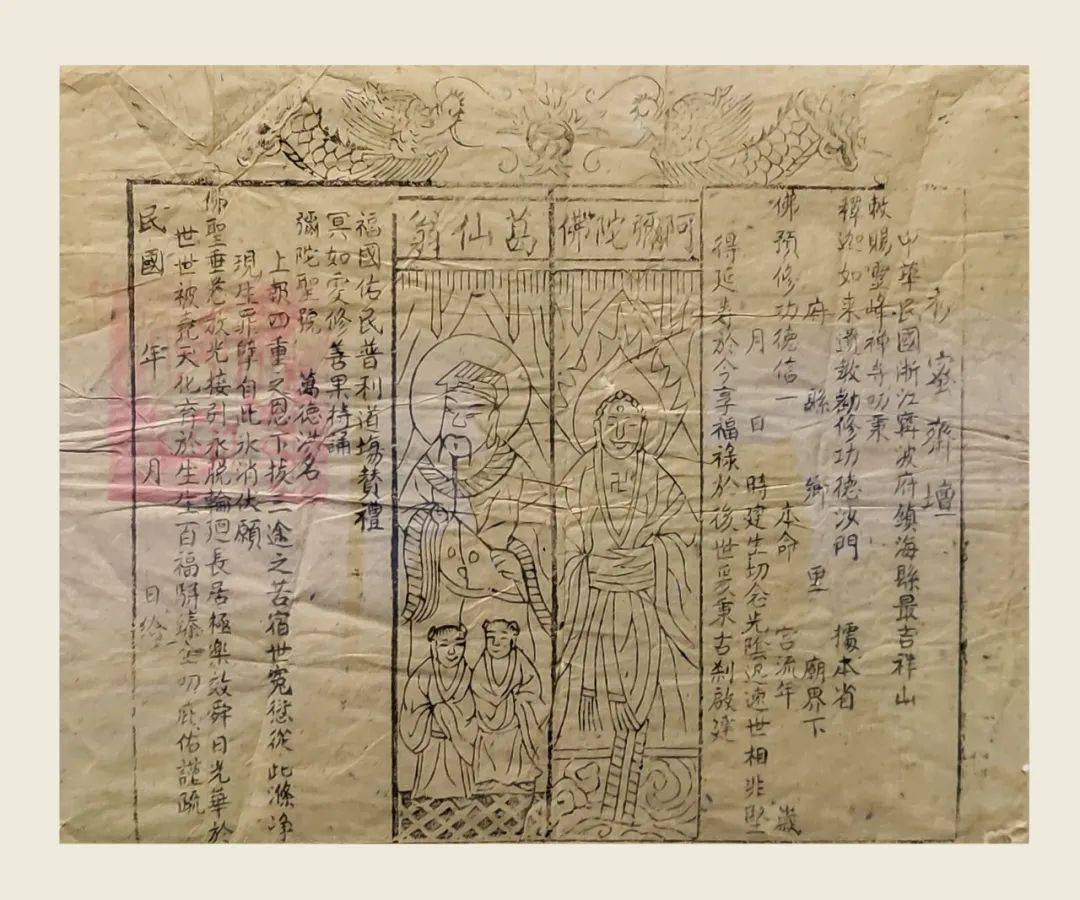 壇
中華民國浙江寧波府鎮海縣最吉祥山
敕賜靈峰禪寺功秉
釋迦如来遺教勸修功德沙門 據本省
府 縣 鄉 里 廟界下
佛預修功德信一 本命 宮流年 歲
月 日 時建生切念光陰迅速世相非堅
得延壽於今享福祿於後世爰秉古刹啟建
阿彌陀佛
葛仙翁
福國佑民普利道場贊禮
冥如受修善果持誦
彌陀聖號 萬德洪名
上報四重之恩下拔三途之苦宿世冤愆從此滌净
現生罪障自此冰消伏願
佛聖垂慈放光接引永脱輪迴長居極樂效舜日光華於
世世被堯天化育於生生百福駢臻 切 佑謹疏
民國 年 月 日